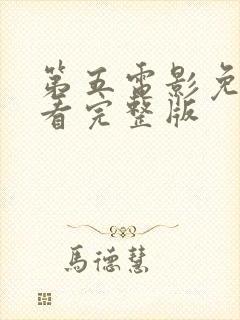 第五電影免
看完整版
馬德慧